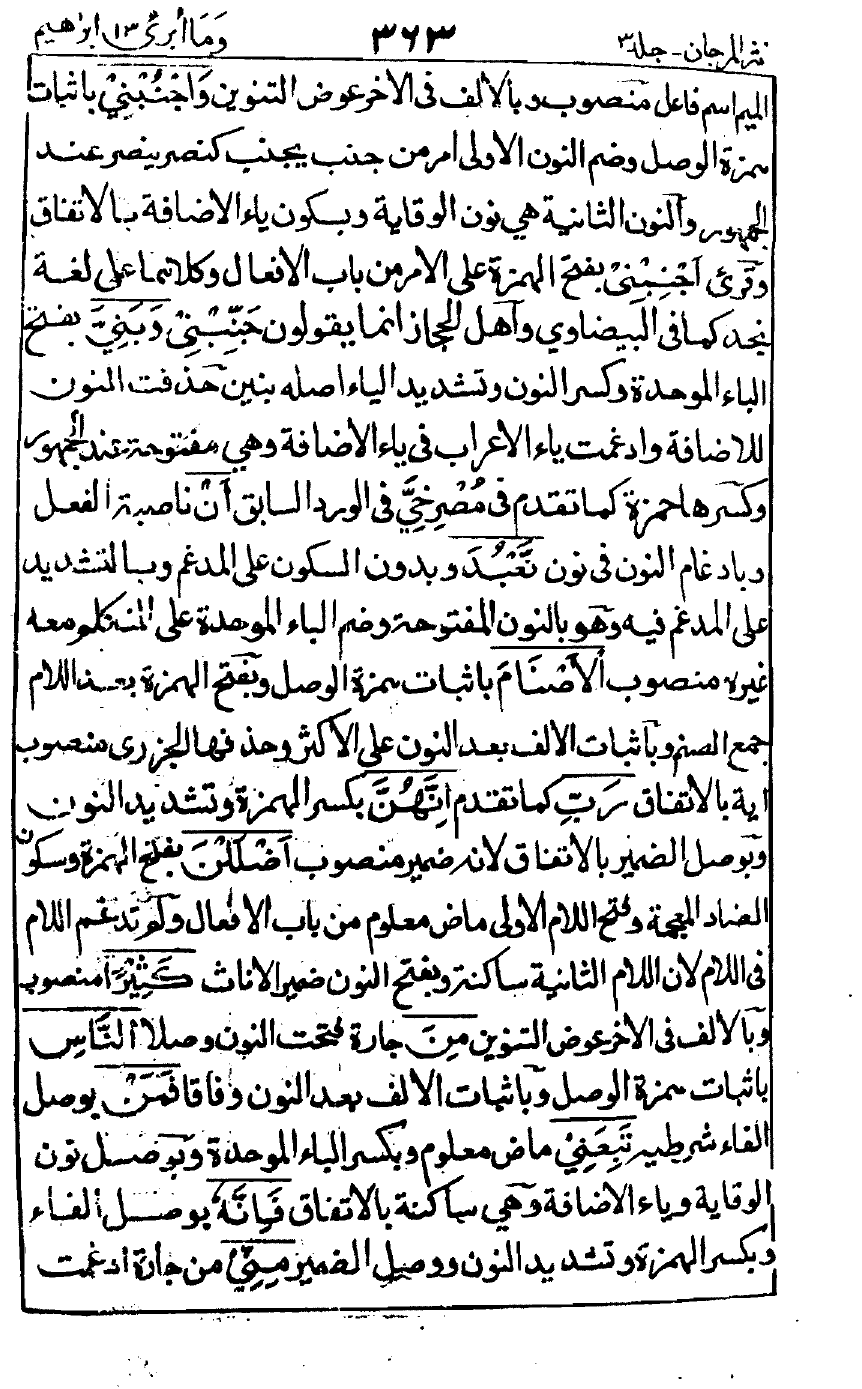 نثر المرجان - جلد ٣ ٣٦٣ وَمَا أُبرئ ١٣ ابراهيم
الميم اسم فاعل منصوب وبالألف فى الاخر عوض التنوين وَاجْنُبْنِيْ باثبات
همزة الوصل وضم النون الاولى امر من جنب يجنب كنصر ينصر عند
الجمهور والنون الثانية هي نون الوقاية وبسكون ياء الاضافة بالاتفاق
وقرئ اَجْنِبْنِيْ بفتح الهمزة على الامر من باب الافعال وكلاهما على لغة
نجد كما فى البيضاوي وآهل الحجاز انما يقولون جَنِّبْنِيْ وَبَنِيَّ بفتح
الباء الموحدة وكسر النون وتشديد الياء اصله بنين حذفت النون
للاضافة وادغمت ياء الاعراب فى ياء الاضافة وهي مفتوحة عند الجمهور
وكسرها حمزة كما تقدم فى مُصْرِخِيَّ فى الورد السابق اَنْ ناصبة الفعل
وبادغام النون فى نون نَّعْبُدَ وبدون السكون على المدغم وبالتشديد
على المدغم فيه وهو بالنون المفتوحة وضم الباء الموحدة على المتكلم معه
غيره منصوب الْاَصْنَامَ باثبات همزة الوصل وبفتح الهمزة بعد اللام
جمع الصنم وباثبات الالف بعد النون على الاكثر وحذفها الجزرى منصوب
اية بالاتفاق رَبِّ كما تقدم اِنَّهُنَّ بكسر الهمزة وتشديد النون
وبوصل الضمير بالاتفاق لانه ضمير منصوب اَضْلَلْنَ بفتح الهمزة وسكون
الضاد المعجمة وفتح اللام الاولى ماض معلوم من باب الافعال ولم تدغم اللام
فى اللام لان اللام الثانية ساكنة وبفتح النون ضمير الاناث كَثِيْرًا منصوب
وبالالف فى الاخر عوض التنوين مِنَ جارة فتحت النون وصلا النَّاسِ
باثبات همزة الوصل وباثبات الالف بعد النون وفاقا فَمَنْ بوصل
الفاء شرطية تَبِعَنِيْ ماض معلوم وبكسر الباء الموحدة وبوصل نون
الوقاية وياء الاضافة وهي ساكنة بالاتفاق فَاِنَّهُ بوصل الفاء
وبكسر الهمزة وتشديد النون ووصل الضمير مِنِّيْ من جارة ادغمت